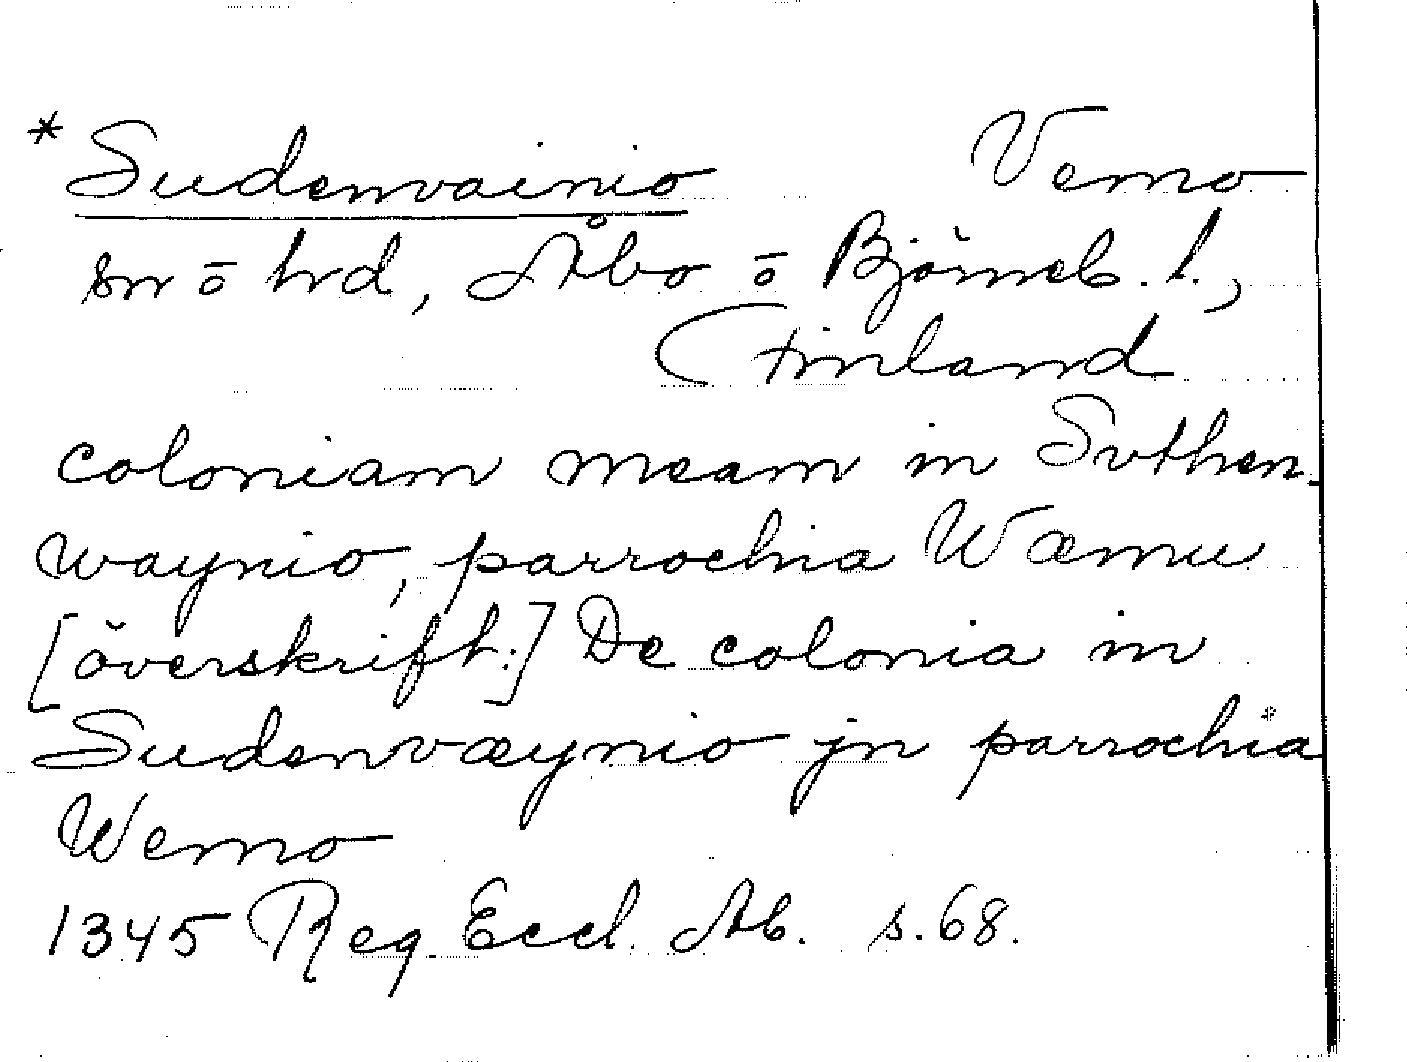 * Sudenvainio Vemo
sn ō hd, Åbo ō Björneb. l.,
Finland
coloniam meam in Svthen-
waynio, parrochia Wæmu
[överskrift:] De colonia in
Sudenvæynio jn parrochia
Wemo
1345 Reg. Eccl. Ab. s. 68.